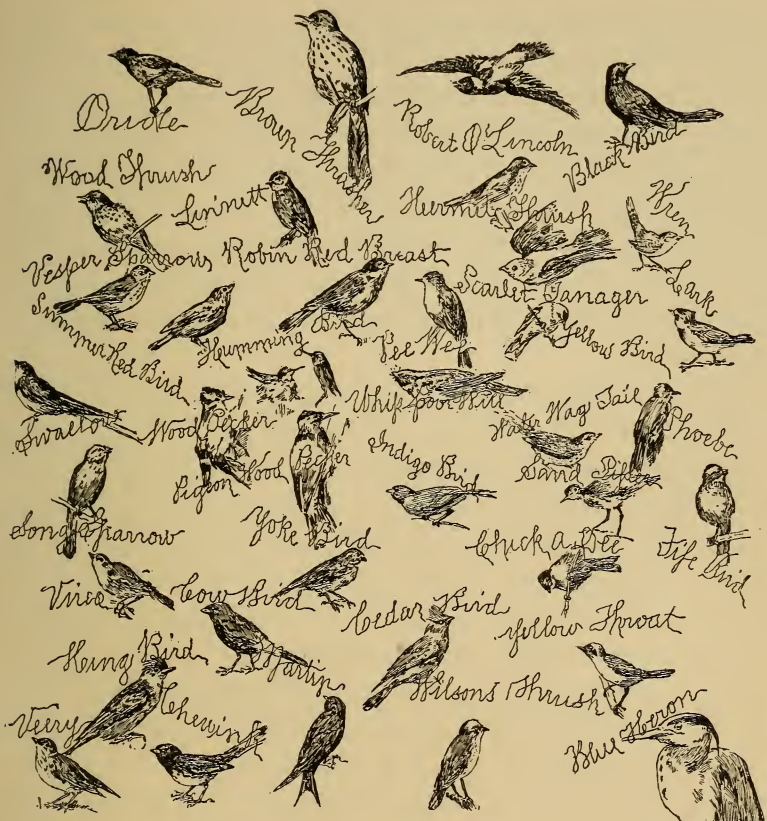 Oriole
Brown Thrasher
Robert O'Lincoln
Black Bird
Wood Thrush
Linnett
Hermit Thrush
Wren
Vesper Sparrows
Robin Red Breast
Scarlet Tanager
Lark
Summer Red Bird
Humming Bird
Pee Wee
Yellow Bird
Swallow
Wood Pecker
Whip poor Will
Water Wag Tail
Phoebe
Pigeon Wood Pecker
Indigo Bird
Sand Piper
Song Sparrow
Yoke Bird
Chick a Dee
Fife Bird
Vireo
Cow Bird
Cedar Bird
Yellow Throat
King Bird
Martin
Wilsons Thrush
Veery
Chewink
Blue Heron